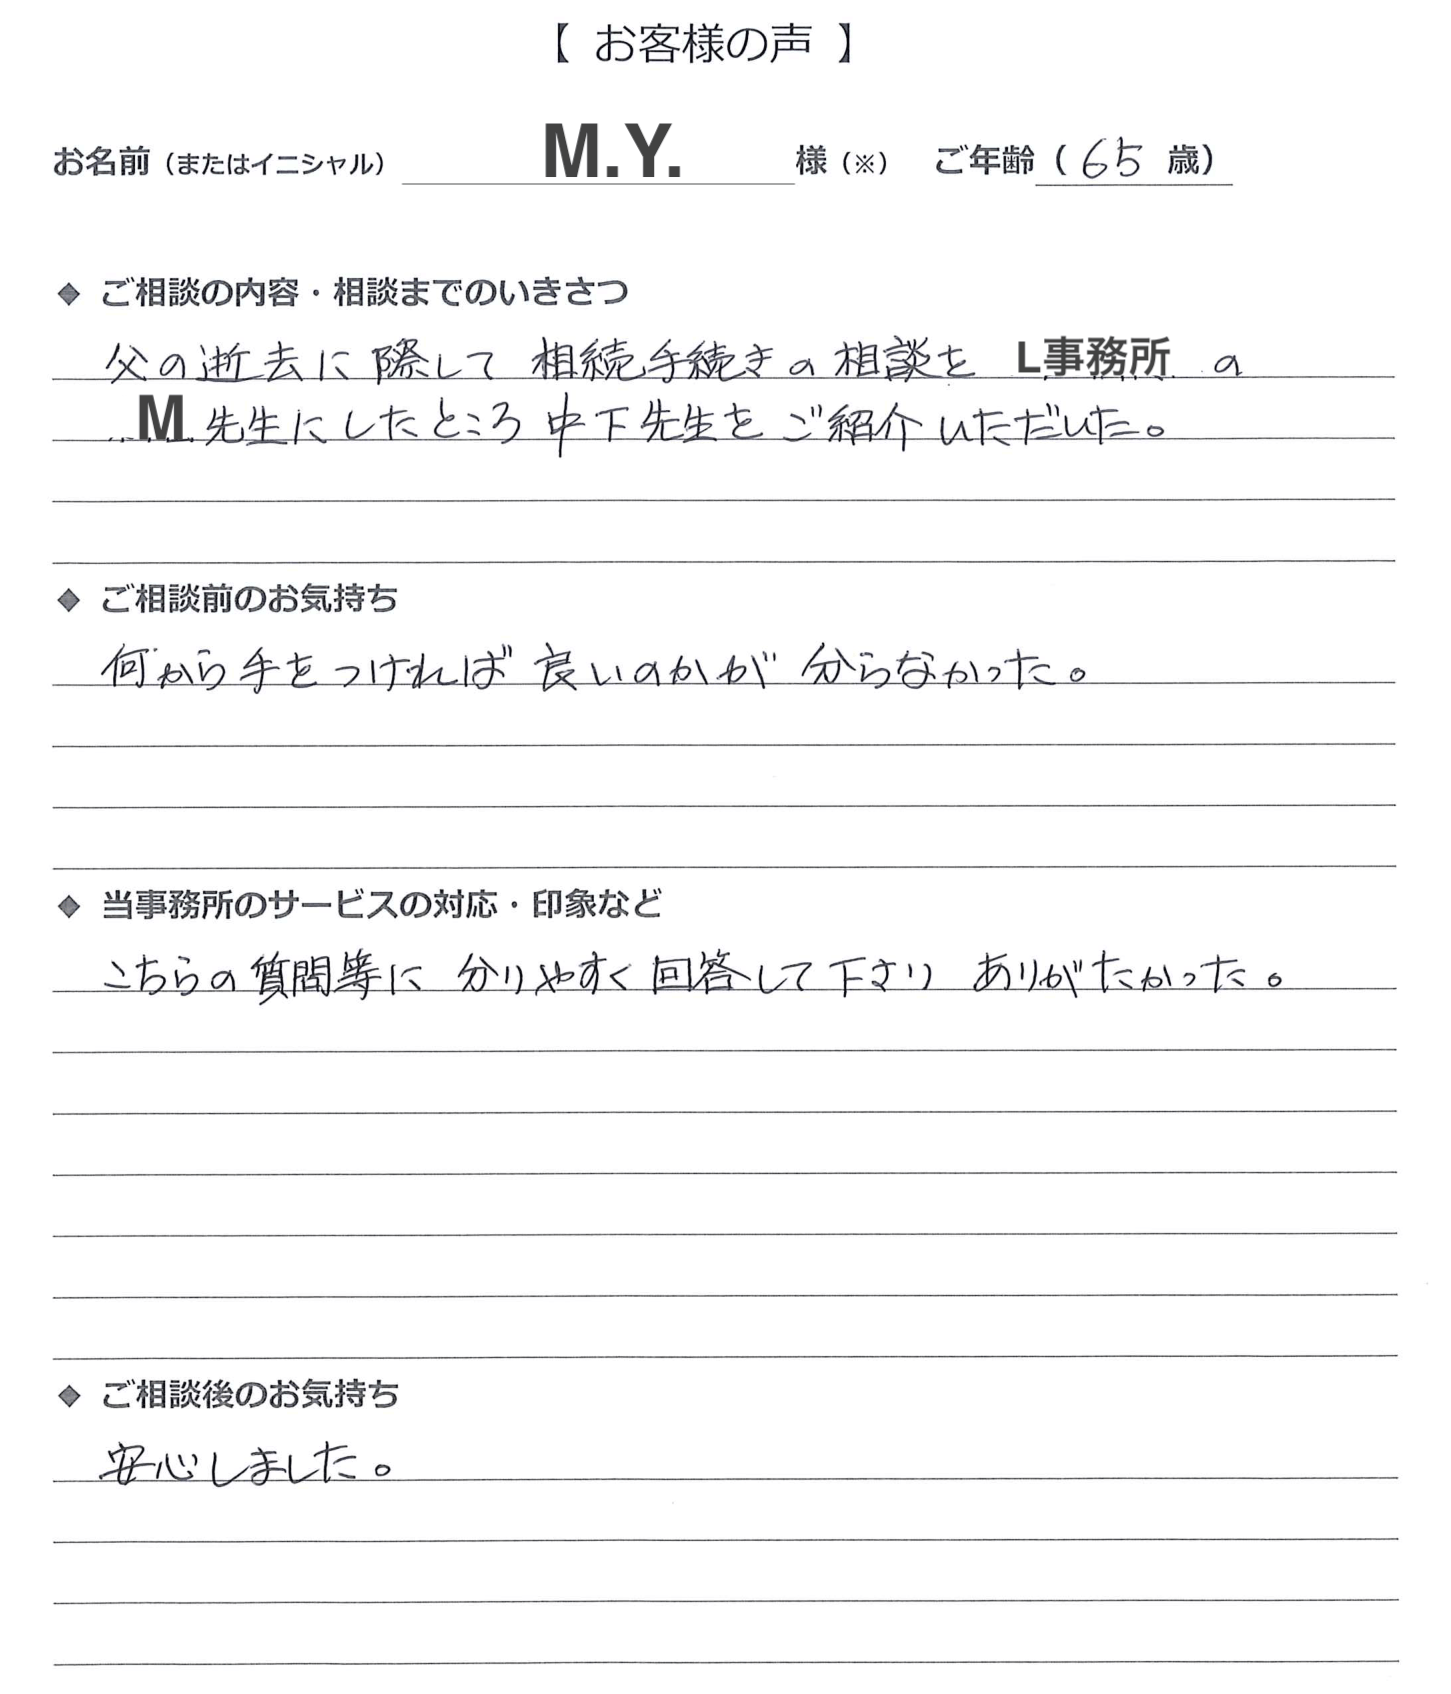 【 お客様の声 】
お名前（またはイニシャル） M.Y. 様（※） ご年齢（ 65 歳）
◆ ご相談の内容・相談までのいきさつ
父の逝去に際して 相続手続きの相談を L事務所 の
M 先生にしたところ 中下先生を ご紹介いただいた。
◆ ご相談前のお気持ち
何から手をつければ 良いのかが 分らなかった。
◆ 当事務所のサービスの対応・印象など
こちらの質問等に 分りやすく回答して下さり ありがたかった。
◆ ご相談後のお気持ち
安心しました。